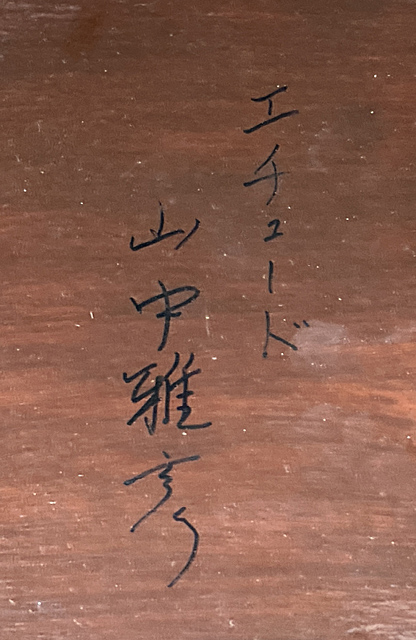 エチュード
山中雅彦